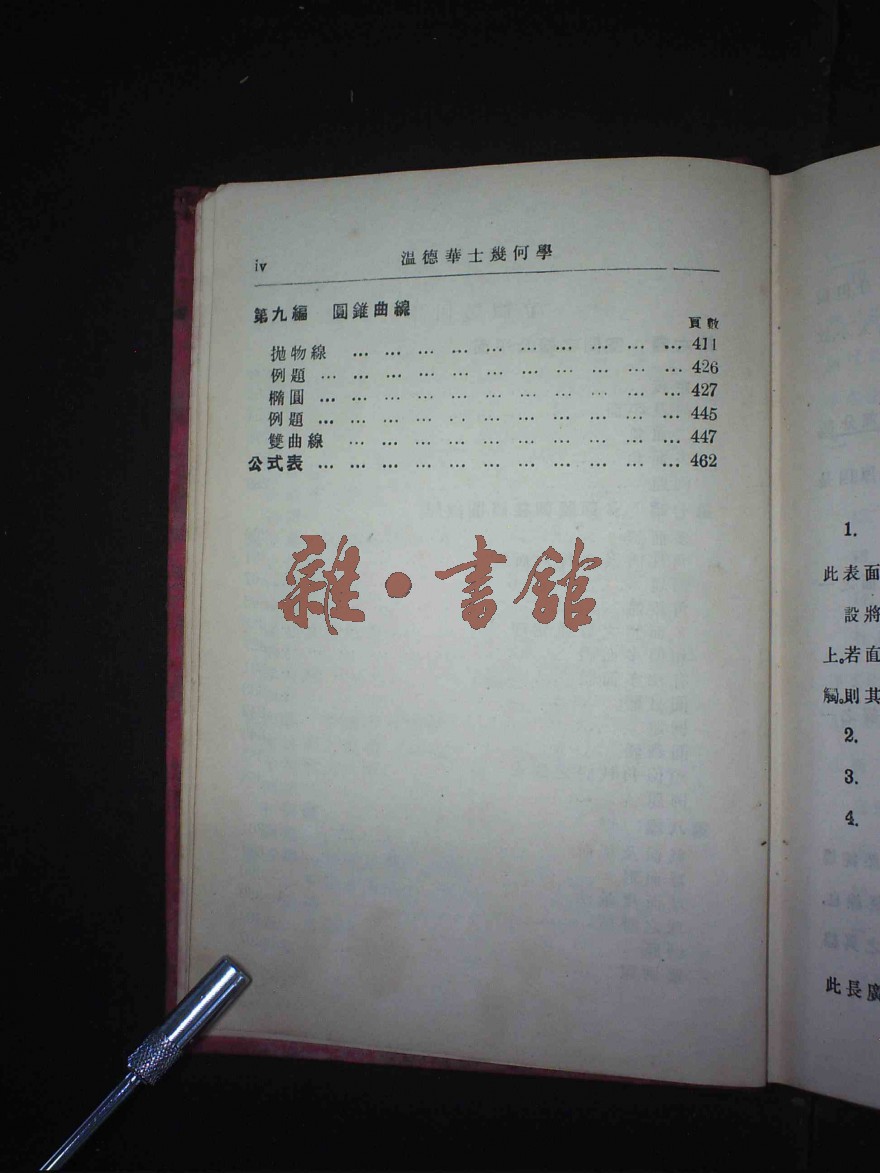 iv 温德華士幾何學
第九編 圓錐曲線
頁數
拋物線 … … … … … … … … … … … 411
例題 … … … … … … … … … … … … 426
橢圓 … … … … … … … … … … … … 427
例題 … … … … … … … … … … … … 445
雙曲線 … … … … … … … … … … … 447
公式表 … … … … … … … … … … … … 462
雜·書館
1.
此表面
設將
上。若面
觸。則其
2.
3.
4.
此長廣